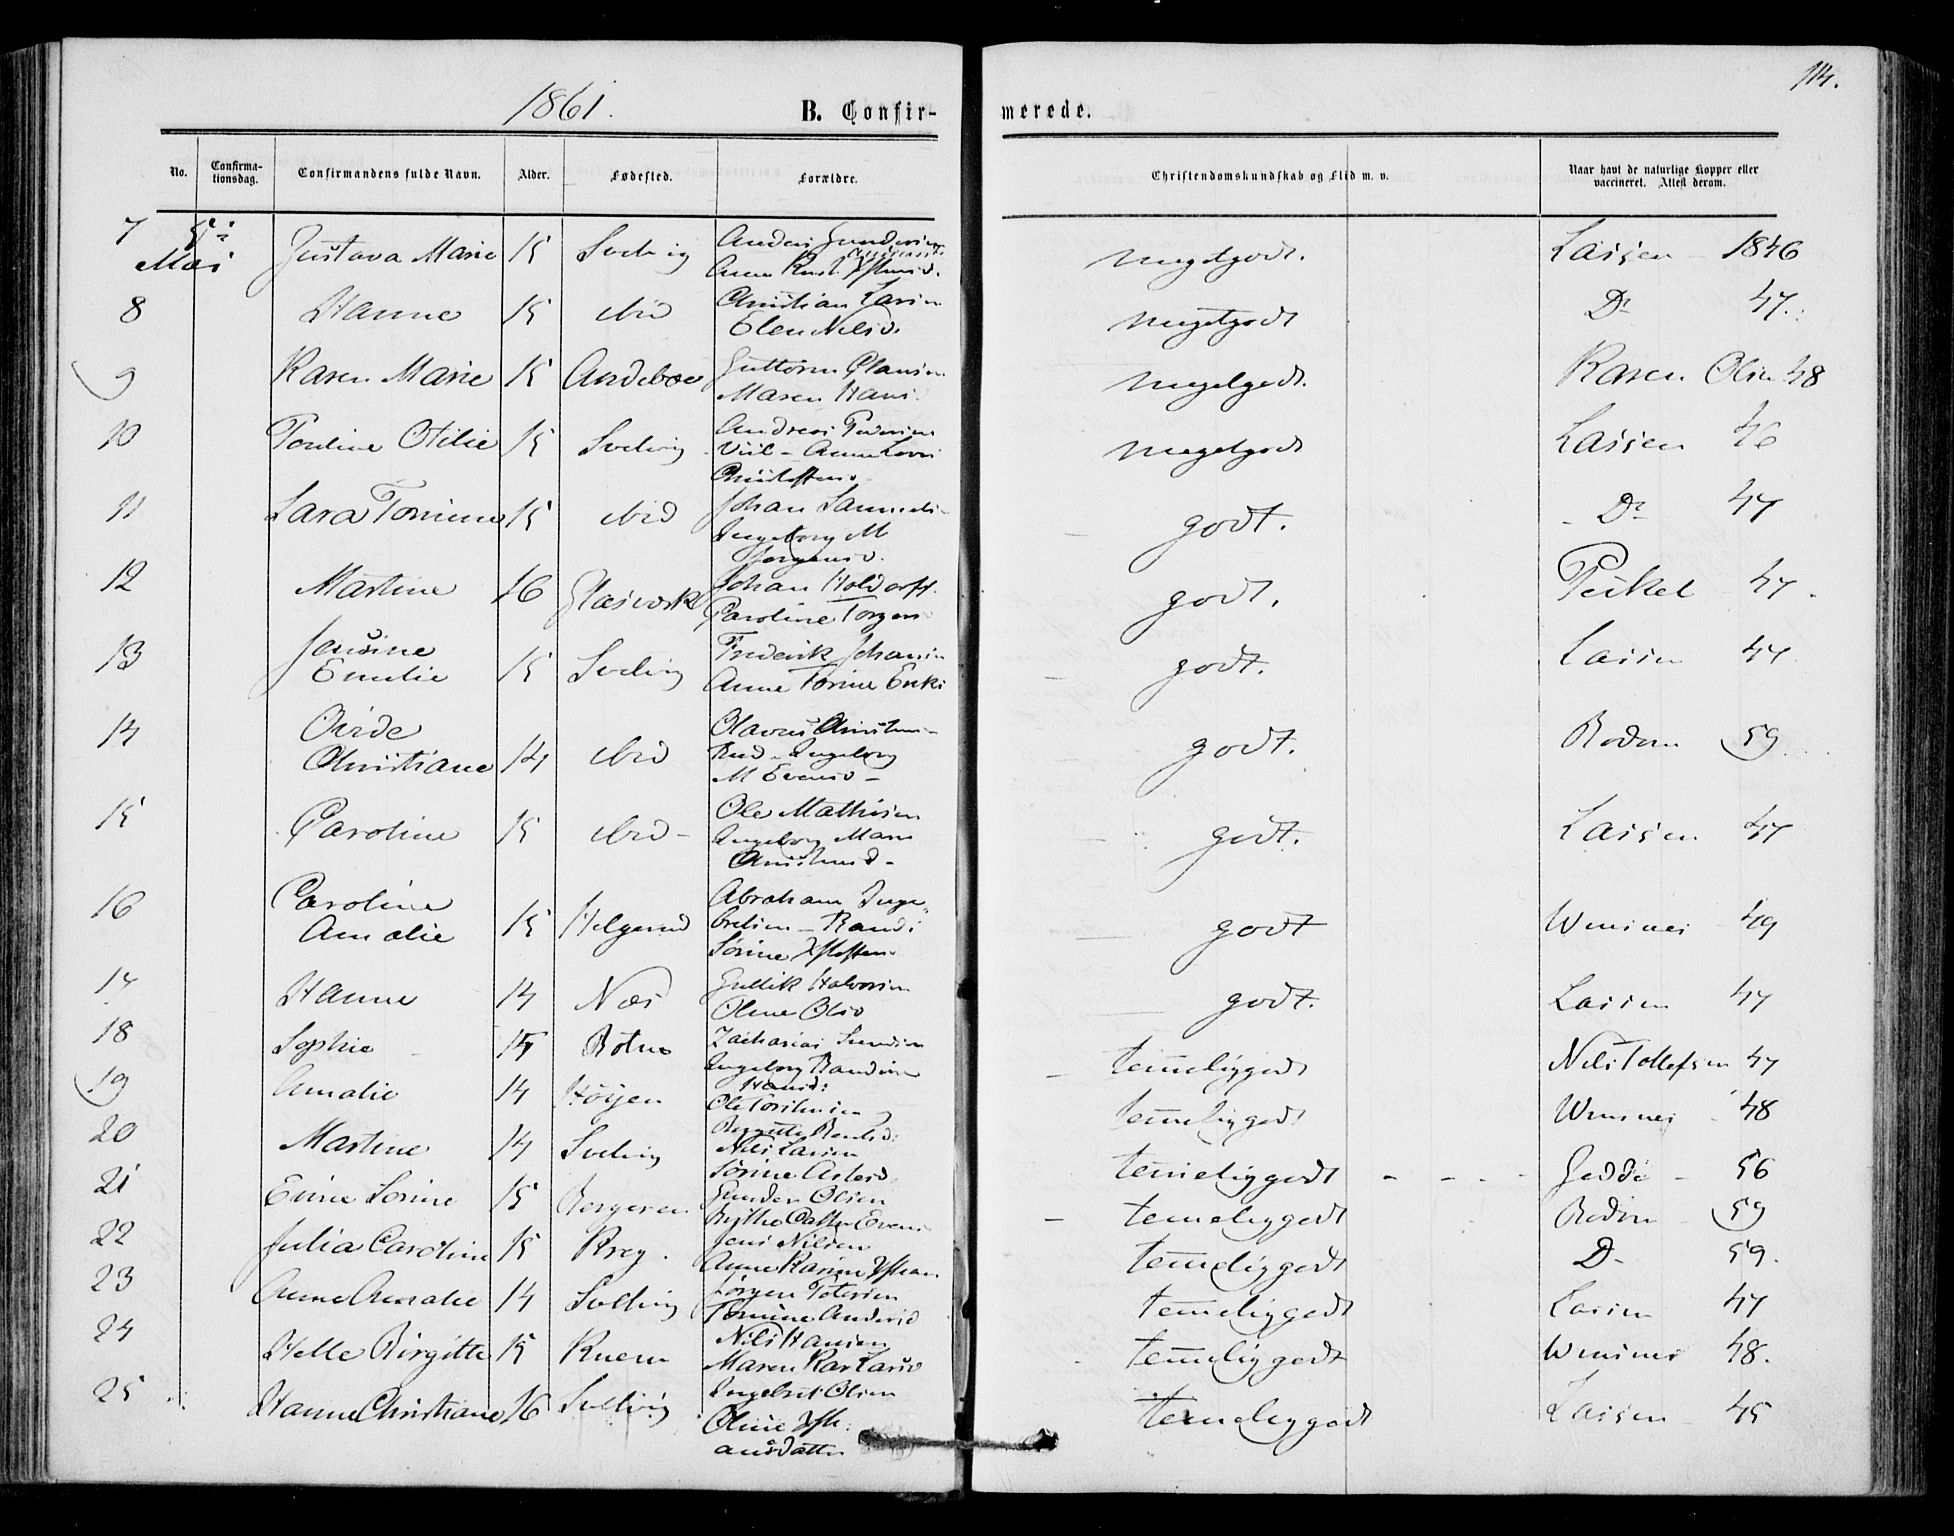 114.
1861.
B. Confir-
merede.
No. Confirma-tionsdag. Confirmandens fulde Navn. Alder. Fødested. Forældre. Christendomskundskab og Flid m. v. Naar havt de naturlige Kopper eller vaccineret. Attest derom.
7 5 Mai Gustava Marie 15 Svelvig Anders Gundersen Anne meget godt. Lassen 1846
8 Hanne 15 ibid Christian Larsen Elen Nilsd. meget godt Do 47.
9 Karen Marie 15 Andeboe Guttorm Maren Hans meget godt. Karen Olsen 48
10 Pouline Otilie 15 Svelvig Andreas Pedersen Anne meget godt Lassen 46
11 Lara Tomine 15 ibid Johan Samuels Ingeborg M Jørgensd. godt. Do 47
12 Martine 16 Glasværk Johan Holdorff. Caroline Torgers godt. Peckel 47.
13 Jensine Emelie 15 Svelvig Frederik Johansen Anne Torine Eriks godt. Lassen 47
14 Christiane 14 ibid Olavus Christens Rud - Ingeborg M Evensd - godt. Rodem 59
15 Caroline 15 ibid - Ole Mathisen Ingeborg Marie Christensd - godt. Lassen 47
16 Caroline Amalie 15 Helgerud Abraham Inge-bretsen - Randi Sørine godt Wensnes 49
17 Hanne 14 Næs Gullik Halvorsen Oline Olsd godt. Lassen 47
18 Sophie 14 Botne Zacharias Ingeborg Randine Hansd: temelig godt Nils Tollefsen 47
19 Amalie 14 Høyen Ole Torstensen Birgitte temelig godt Wensnes 48
20 Martine 14 Svelvig Nils Larsen Sørine temelig godt - - - Gedde - 56
21 Sorine 15 Bergeren Gunder Olsen Evens temelig godt Rodem 59
22 Julia Caroline 15 Krog. Jens Nilsen Anne Karine temelig godt D- 59.
23 Anne Amalie 14 Svelvig Jørgen Petersen Tomine Andersd temelig godt Lassen 47
24 Helle Birgitte 15 Knem Nils Hansen Maren Kar Larsd temelig godt Wensnes 48.
25 Hanne Christiane 16 Svelvig Ingebret Olsen Oline Joh: ansdatter temelig godt Lassen 45